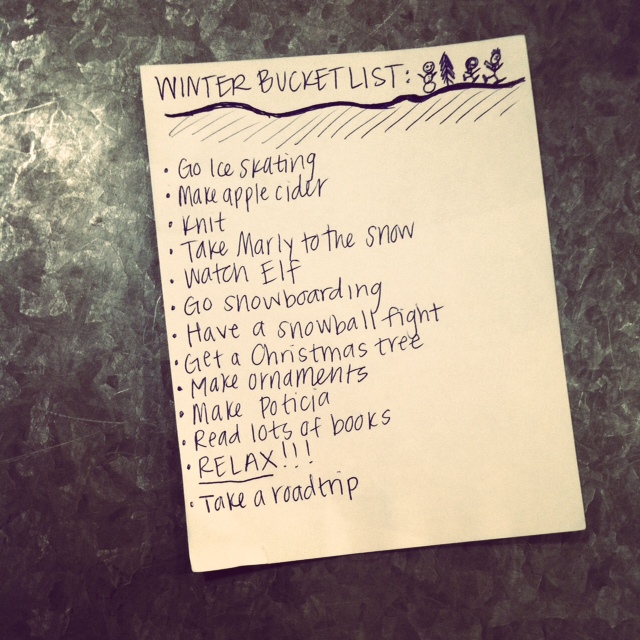 WINTER BUCKET LIST:
• Go Ice skating
• Make apple cider
• Knit
• Take Marly to the snow
• Watch Elf
• Go snowboarding
• Have a snowball fight
• Get a Christmas tree
• Make ornaments
• Make Poticia
• Read lots of books
• RELAX!!!
• Take a roadtrip